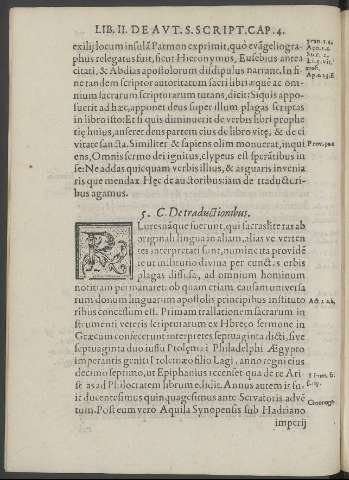 LIB. II. DE AVT. S. SCRIPT. CAP. 4.
exilij locum insulā Patmon exprimit, quò evāgeliogra-
phus relegatus fuit, sicut Hieronymus, Eusebius antea
citati, & Abdias apostolorum discipulus narrant. In fi-
ne tandem scriptor autoritatem sacri libri atque ac om-
nium sacrarum scriptorarum tutans, dicit: Siquis appo-
suerit ad hæc, apponet deus super illum plagas scriptas
in libro isto: Et si quis diminuerit de verbis libri prophe
tię huius, auferet deus partem eius de libro vitę, & de ci
vitate sancta. Similiter & sapiens olim monuerat, inqui
ens, Omnis sermo dei ignitus, clypeus est sperātibus in
se: Ne addas quicquam verbis illius, & arguaris inveniā
ris que mendax Hęc de autoribus: iam de traductori-
bus agamus.
Prov. 30.
5. C. De traductionibus.
PLuresnáque fuerunt, qui sacras literas ab
originali lingua in aliam, alias ve verten
tes interpretati sunt, numine ita providē
te ut institutio divina per cunctas orbis
plagas diffusa, ad omnium hominum
notitiam permanaret: ob quam etiam causam universa
rum donum linguarum apostolis principibus instituto
ribus concessum est. Primam trāslationem sacrarum in
strumenti veteris scripturarum ex Hbręo sermone in
Græcum confecerunt interpretes septuaginta dicti, sive
septuaginta duo iussu Ptolęmaei Philadelphi Ægypto
imperantis geniti Ptolemæo filio Lagi, anno regni eius
decimo septimo, ut Epiphanius recenset qua de re Ari
steas ad Philocratem librum edidit. Annus autem is fu-
it ducentesimus quinquagesimus ante Servatoris advē
tum. Post eum vero Aquila Synopensis sub Hadriano
imperij